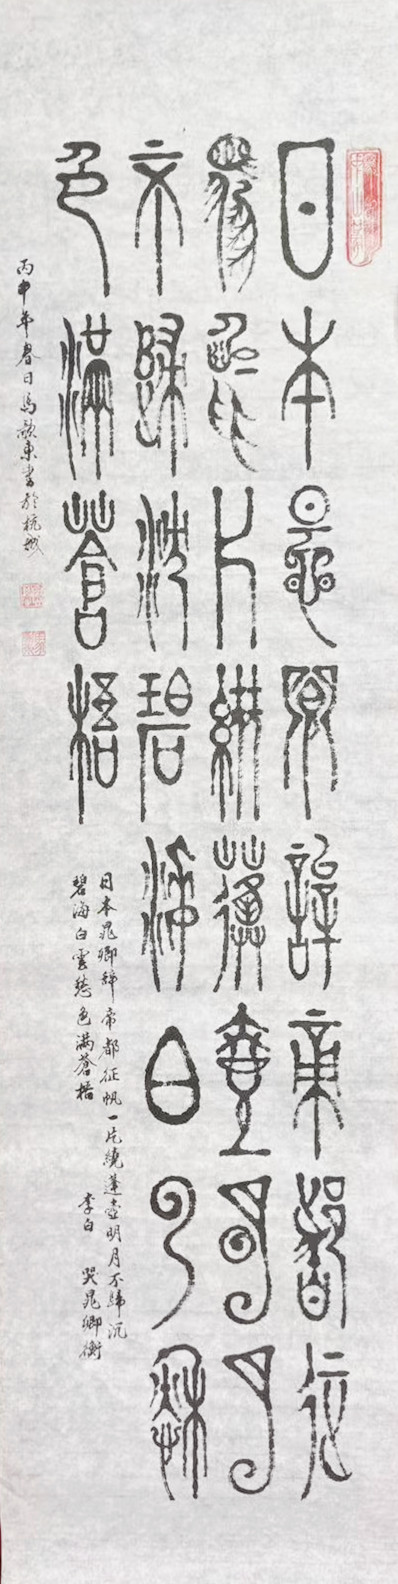 日本晁卿辭帝都征
帆一片繞蓬壺明月
不歸沉碧海白雲愁
色滿蒼梧
日本晁卿辭帝都征帆一片繞蓬壺明月不歸沉
碧海白雲愁色滿蒼梧 李白 哭晁卿衡
丙申年春日馬東書於杭城